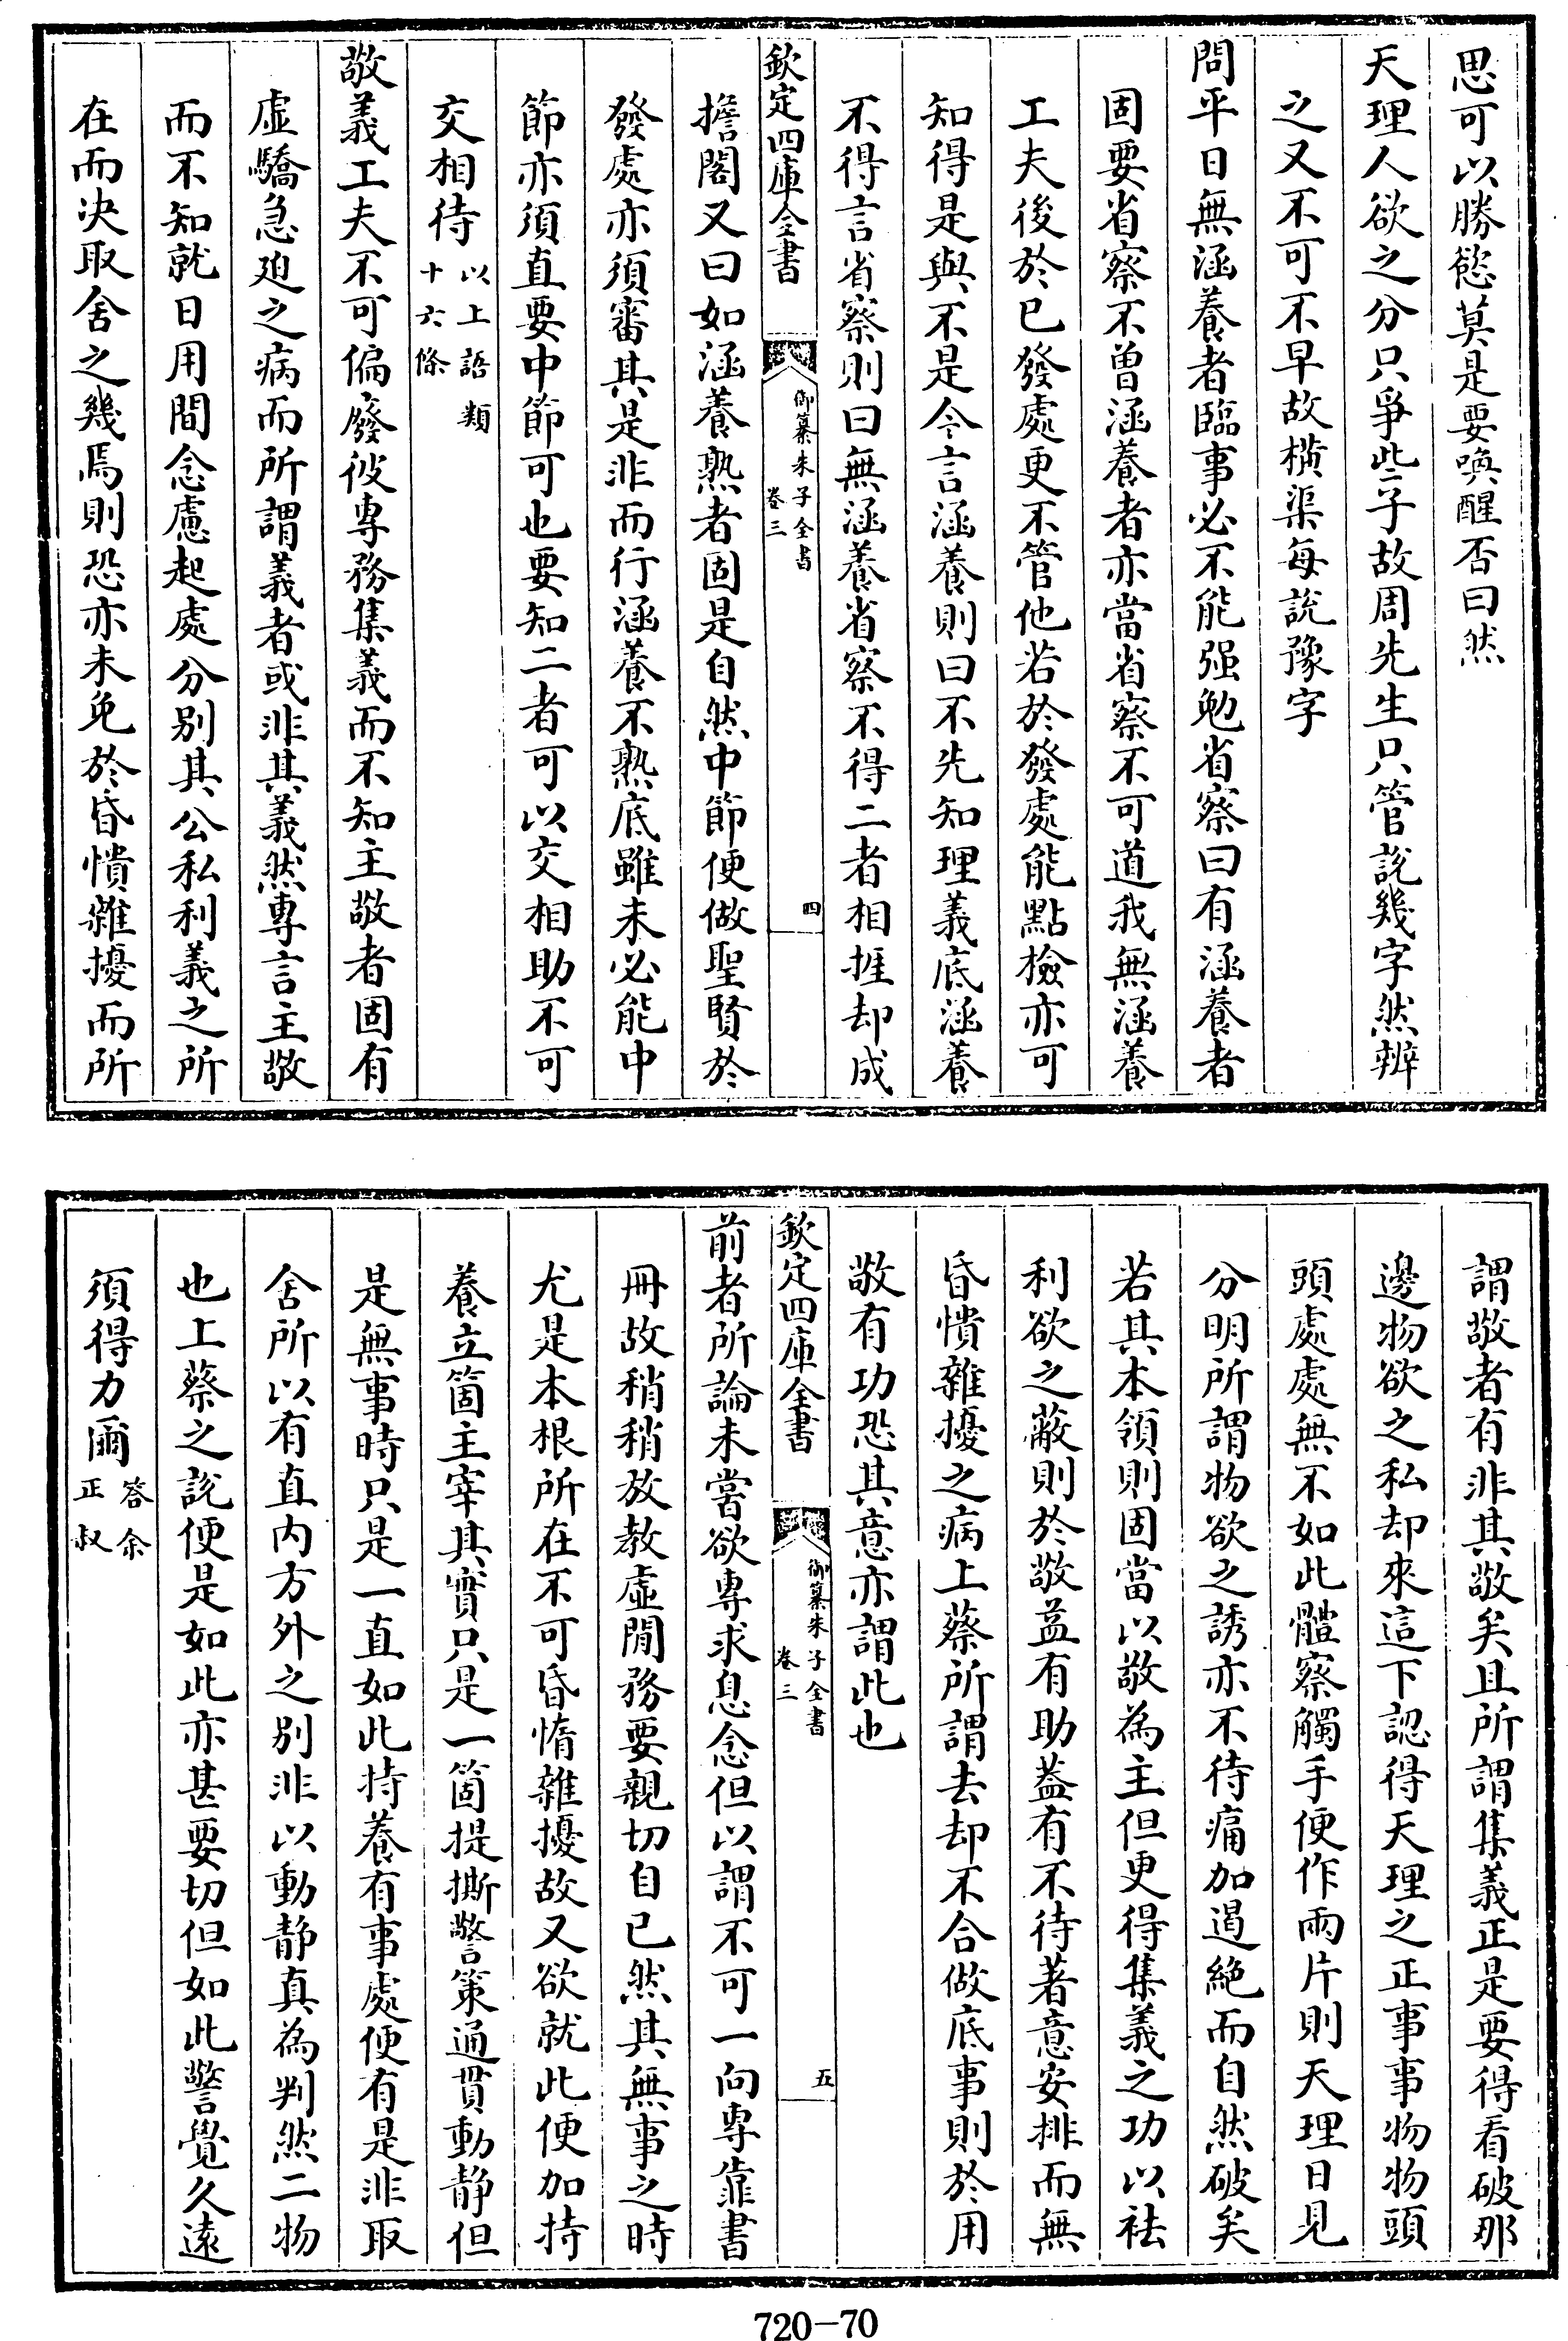 思可以勝慾莫是要喚醒否曰然
天理人欲之分只爭些子故周先生只管說幾字然辨
之又不可不早故橫渠每說豫字
問平日無涵養者臨事必不能强勉省察曰有涵養者
固要省察不曾涵養者亦當省察不可道我無涵養
工夫後於已發處更不管他若於發處能點檢亦可
知得是與不是今言涵養則曰不先知理義底涵養
不得言省察則曰無涵養省察不得二者相捱却成
欽定四庫全書
御纂朱子全書
卷三
四
擔閣又曰如涵養熟者固是自然中節便做聖賢於
發處亦須審其是非而行涵養不熟底雖未必能中
節亦須直要中節可也要知二者可以交相助不可
交相待以上語類十六條
敬義工夫不可偏廢彼專務集義而不知主敬者固有
虛驕急迫之病而所謂義者或非其義然專言主敬
而不知就日用間念慮起處分別其公私利義之所
在而决取舍之幾焉則恐亦未免於昏憒雜擾而所
謂敬者有非其敬矣且所謂集義正是要得看破那
邊物欲之私却來這下認得天理之正事事物物頭
頭處處無不如此體察觸手便作兩片則天理日見
分明所謂物欲之誘亦不待痛加遏絶而自然破矣
若其本領則固當以敬為主但更得集義之功以祛
利欲之蔽則於敬益有助蓋有不待著意安排而無
昏憒雜擾之病上蔡所謂去却不合做底事則於用
敬有功恐其意亦謂此也
欽定四庫全書
御纂朱子全書
卷三
五
前者所論未嘗欲專求息念但以謂不可一向專靠書
冊故稍稍放教虛閒務要親切自已然其無事之時
尤是本根所在不可昏惰雜擾故又欲就此便加持
養立箇主宰其實只是一箇提撕警策通貫動静但
是無事時只是一直如此持養有事處便有是非取
舍所以有直内方外之別非以動静真為判然二物
也上蔡之說便是如此亦甚要切但如此警覺久遠
須得力爾答余正叔
720-70